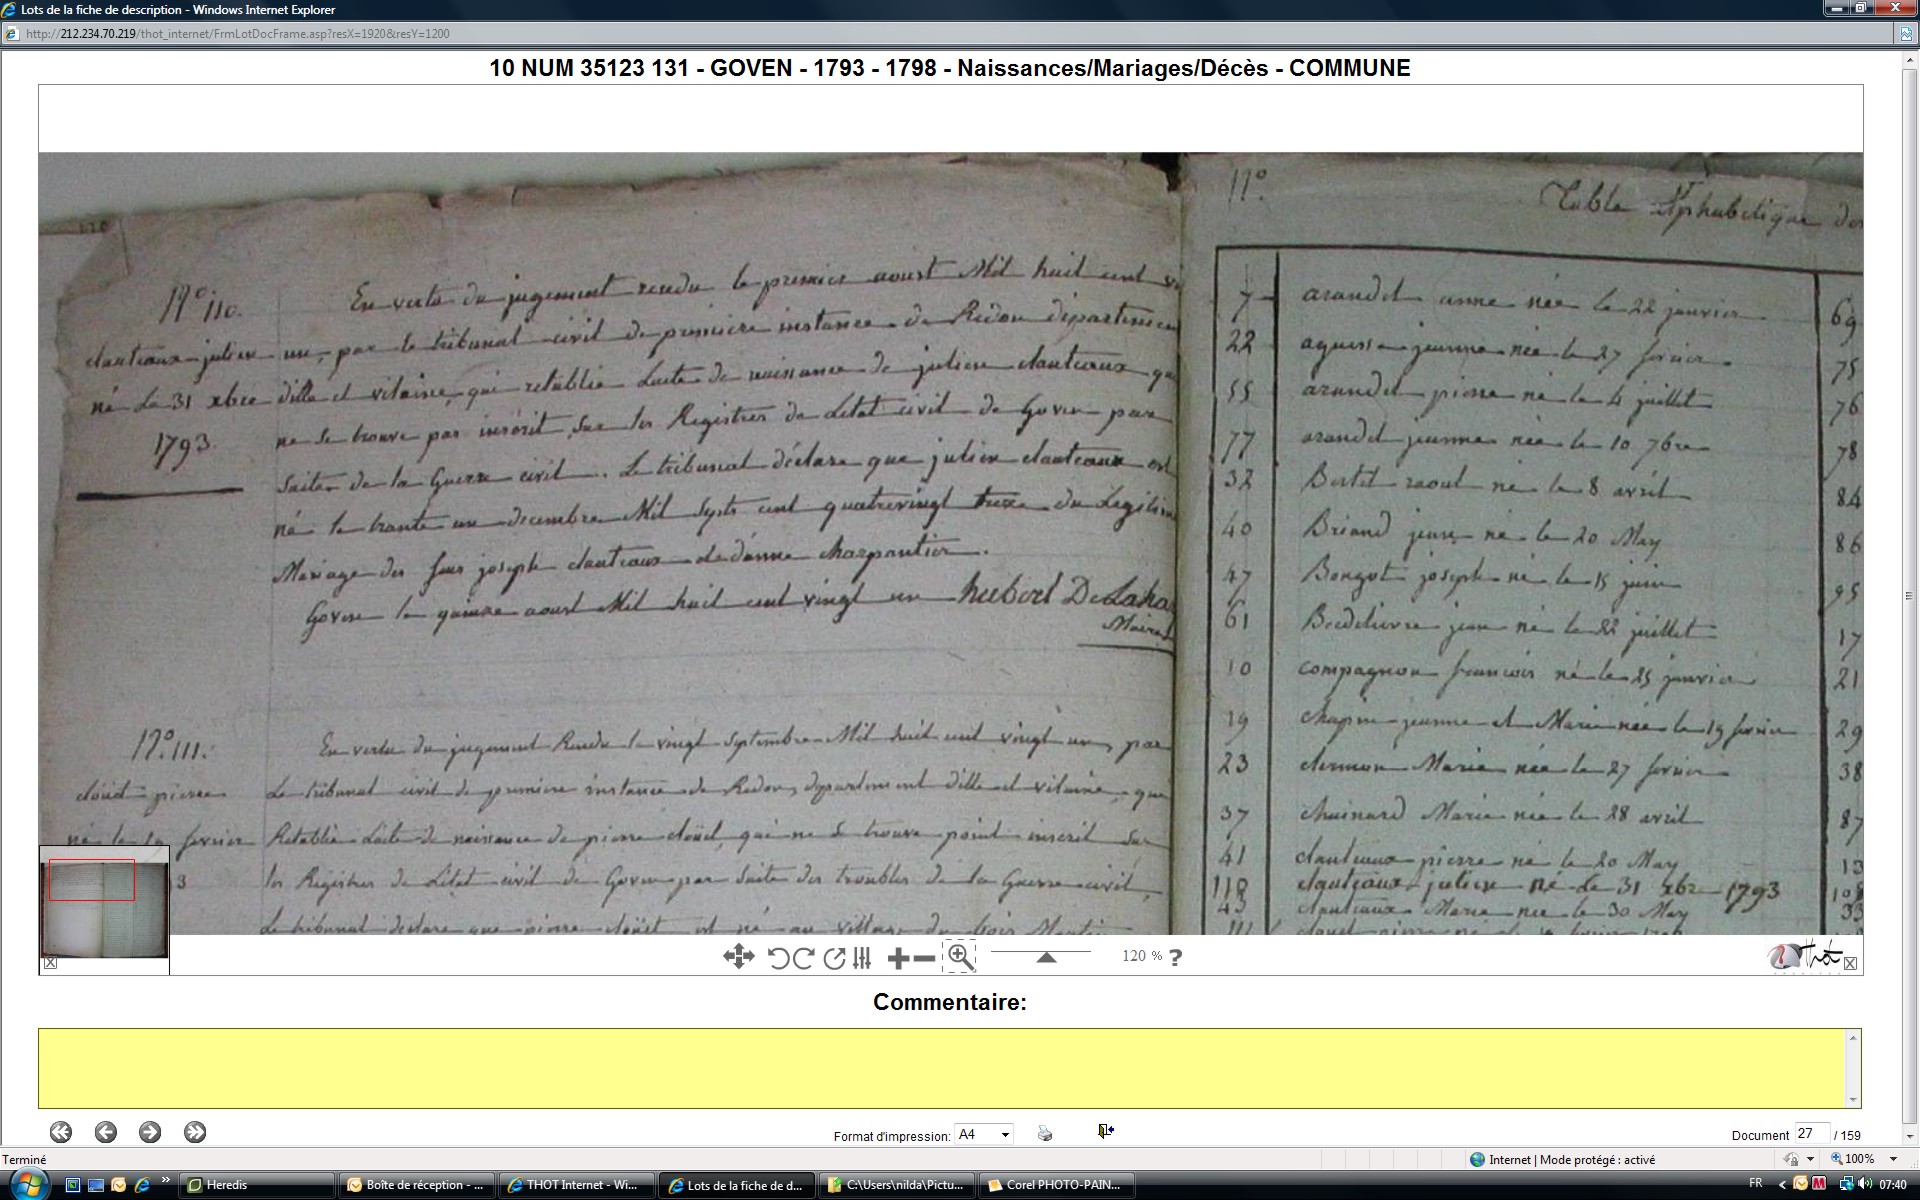 Lots de la fiche de description - Windows Internet Explorer
http://212.234.70.219/thot_internet/FrmLotDocFrame.asp?resX=1920&resY=1200
10 NUM 35123 131 - GOVEN - 1793 - 1798 - Naissances/Mariages/Décès - COMMUNE
N° 110.
clauteaux julien
né le 31 xbre
1793.
En vertu du jugement rendu le premier aoust Mil huit cent
un, par le tribunal civil de première instance de Redon département
dille et vilaine, qui retablie Lacte de naissance de julien clauteaux qui
ne se trouve pas inscrit sur les Registres de Letat civil de Goven par
suite de la Guerre civil. Le tribunal déclare que julien clauteaux est
né le trante un decembre Mil septs cent quatrevingt treze du Legitime
Mariage des feus joseph clauteaux et danne charpantier.
Goven le quinze aoust Mil huit cent vingt un hubert De Laha
Maire
N° 111.
clouet pierre
né le 19 fevrier
3
En vertu du jugement Rendu le vingt Septembre Mil huit cent vingt un, par
Le tribunal civil de premiere instance de Redon, departement dille et vilaine, qui
Retablie Lacte de naissance de pierre clouet, qui ne se trouve point inscrit sur
les Registres de Letat civil de Goven par suite des troubles de la Guerre civil,
Le tribunal declare que pierre clouet est né au village du bois
N°. Table Alphabetique des
7 arandel anne née le 22 janvier 69
22 jeanne née le 27 fevrier 75
55 arandel pierre né le 4 juillet 76
77 arandel jeanne née le 10 7bre 78
32 Bertel raoul né le 8 avril 84
40 Briand jean né le 20 May 86
47 Bougot joseph né le 15 juin 95
61 jean né le 22 juillet 17
10 compagnon francois né le 25 janvier 21
19 chapin jeanne et Marie née le 19 fevrier 29
23 clermon Marie née le 27 fevrier 38
37 chuinard Marie née le 28 avril 87
41 clauteaux pierre né le 20 May 13
110 clauteaux julien né le 31 xbre 1793
43 clauteaux Marie née le 30 May 33
111 clouet pierre né le
120 % ?
Thot
Commentaire:
Format d'impression: A4
Document 27 / 159
Terminé
Internet | Mode protégé : activé
100%
Heredis
Boîte de réception - ...
THOT Internet - Wi...
Lots de la fiche de d...
C:\Users\nilda\Pictu...
Corel PHOTO-PAIN...
FR
07:40